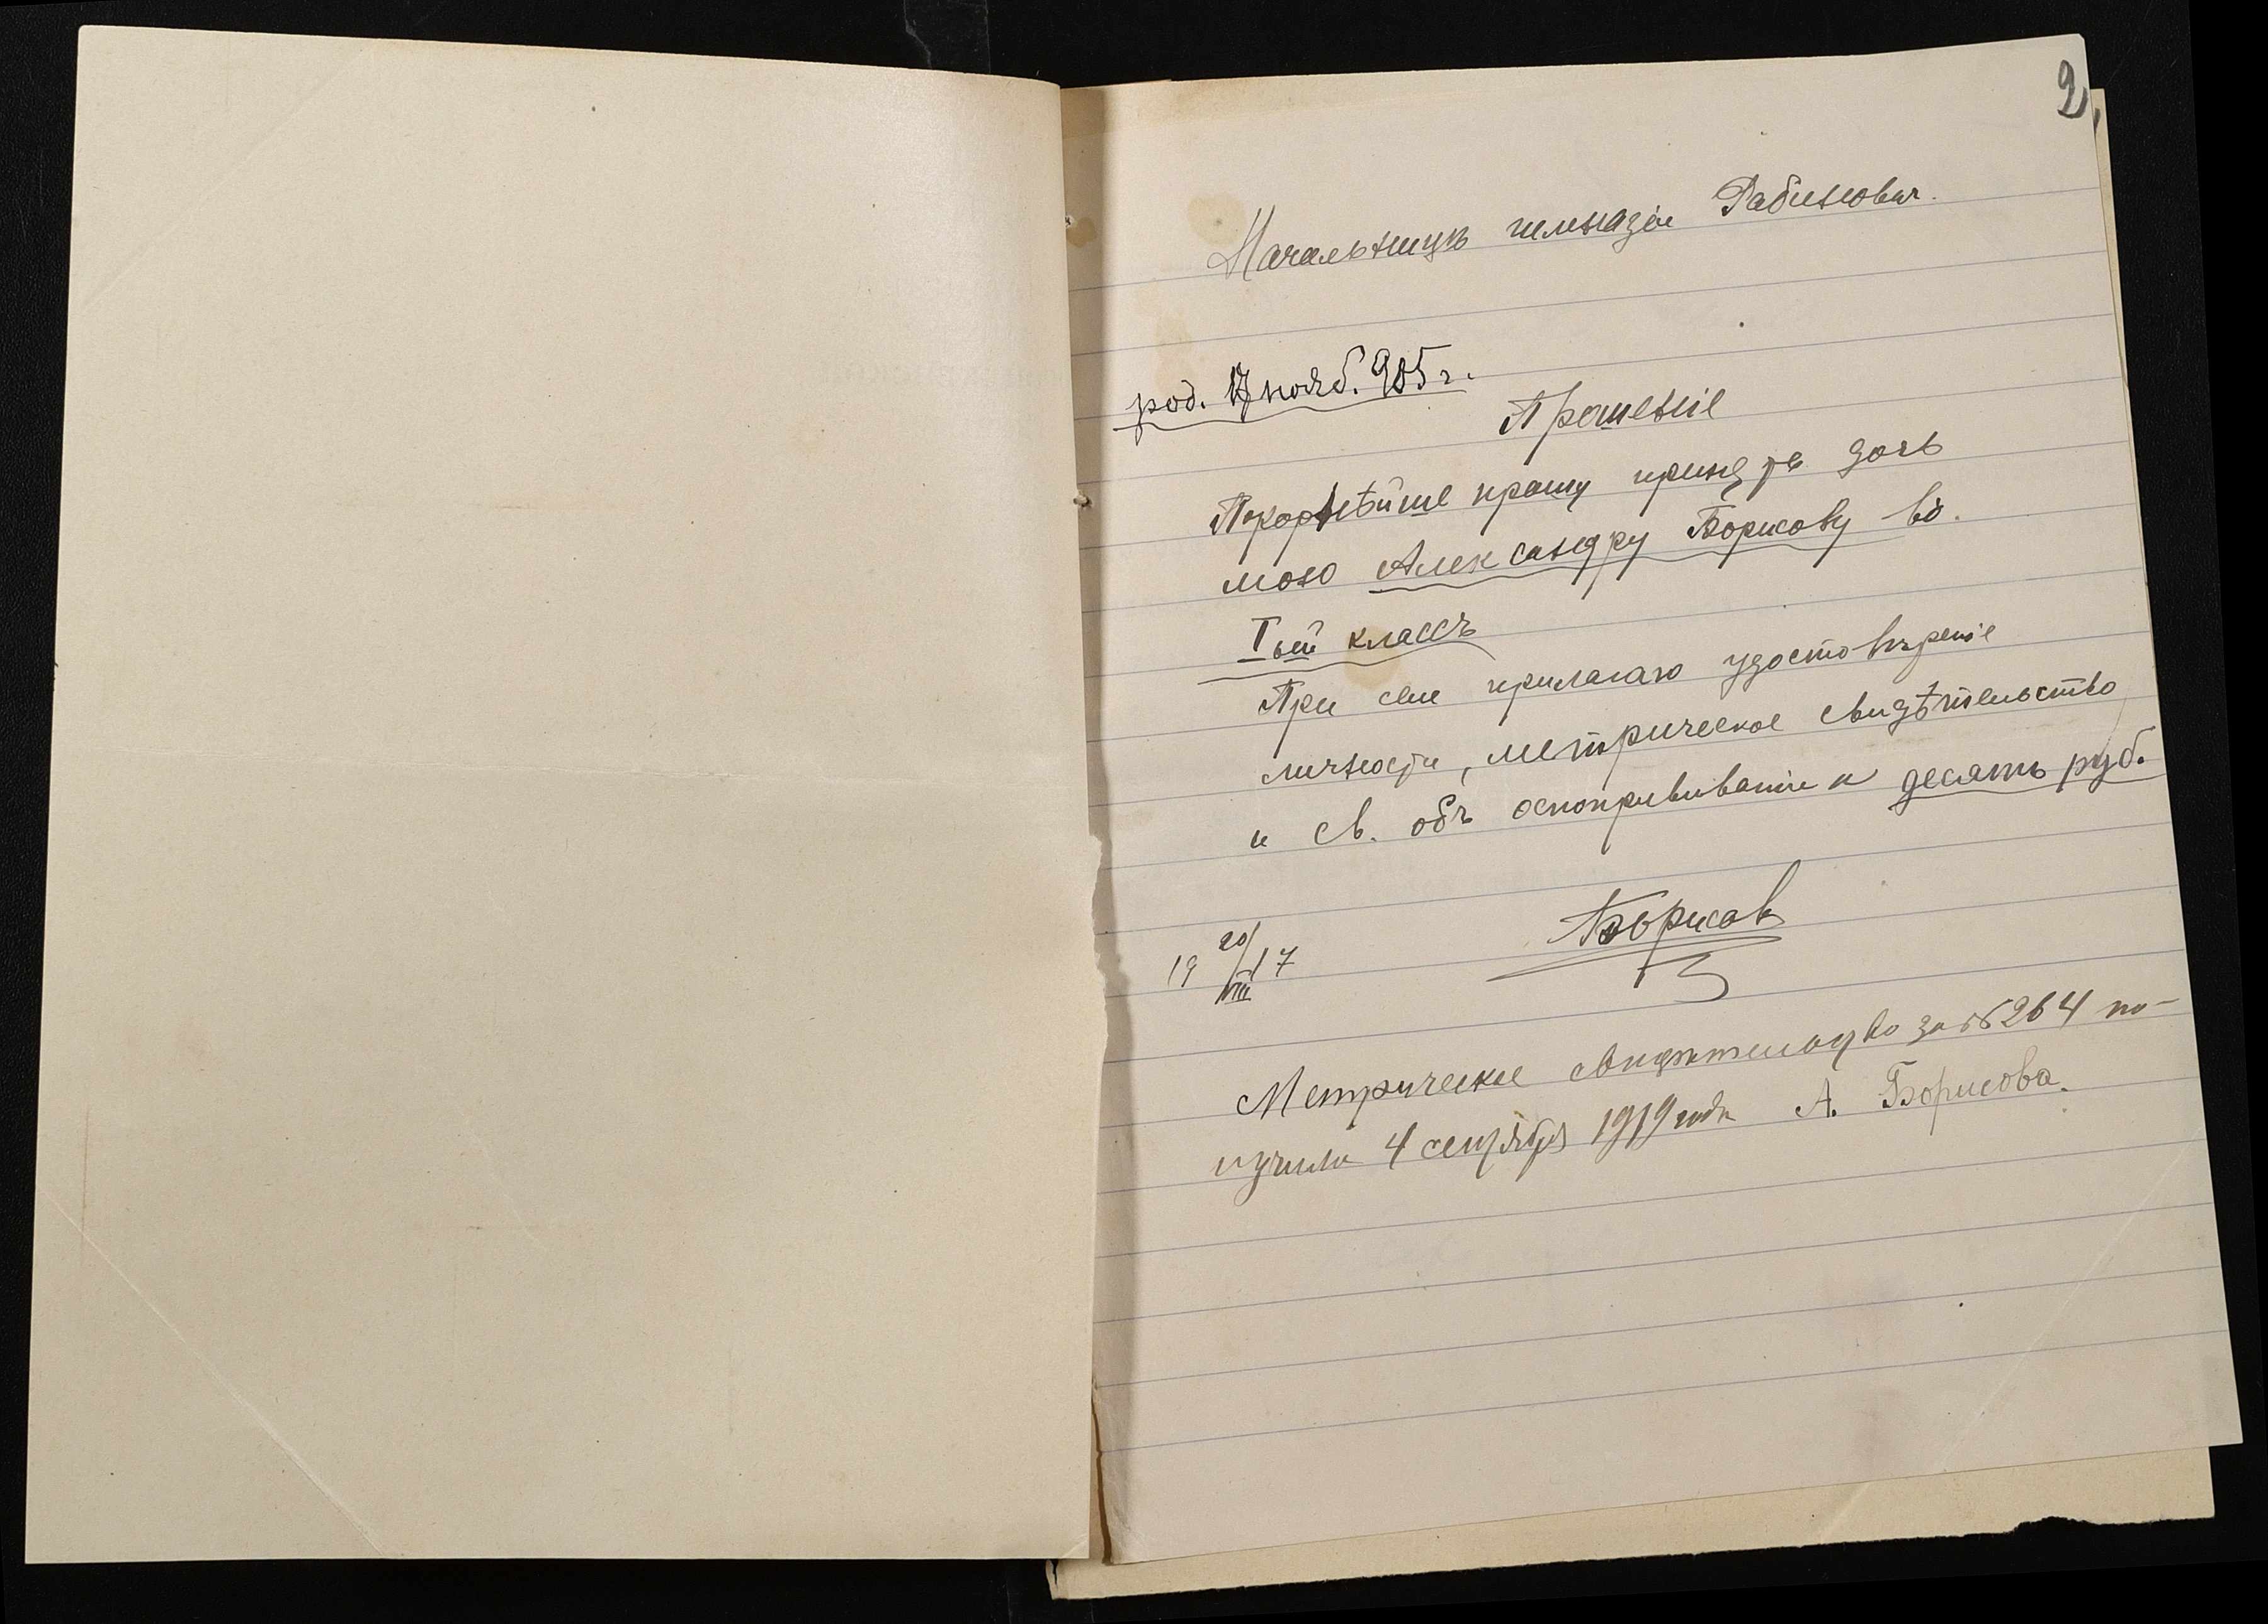 2
Начальницѣ гимназіи Рабинович.
род. 17 нояб. 905 г.
Прошеніе
Покорнѣйше прошу принять дочь
мою Александру Борисову во
Iый классъ
При сем прилагаю удостовѣреніе
личности, метрическое свидѣтельство
и св. объ оспопрививаніи и десять руб.
Борисов
19 20/VIII 17
Метрическое свидѣтельство за № 264 по-
лучила 4 сентября 1919 года А. Борисова.